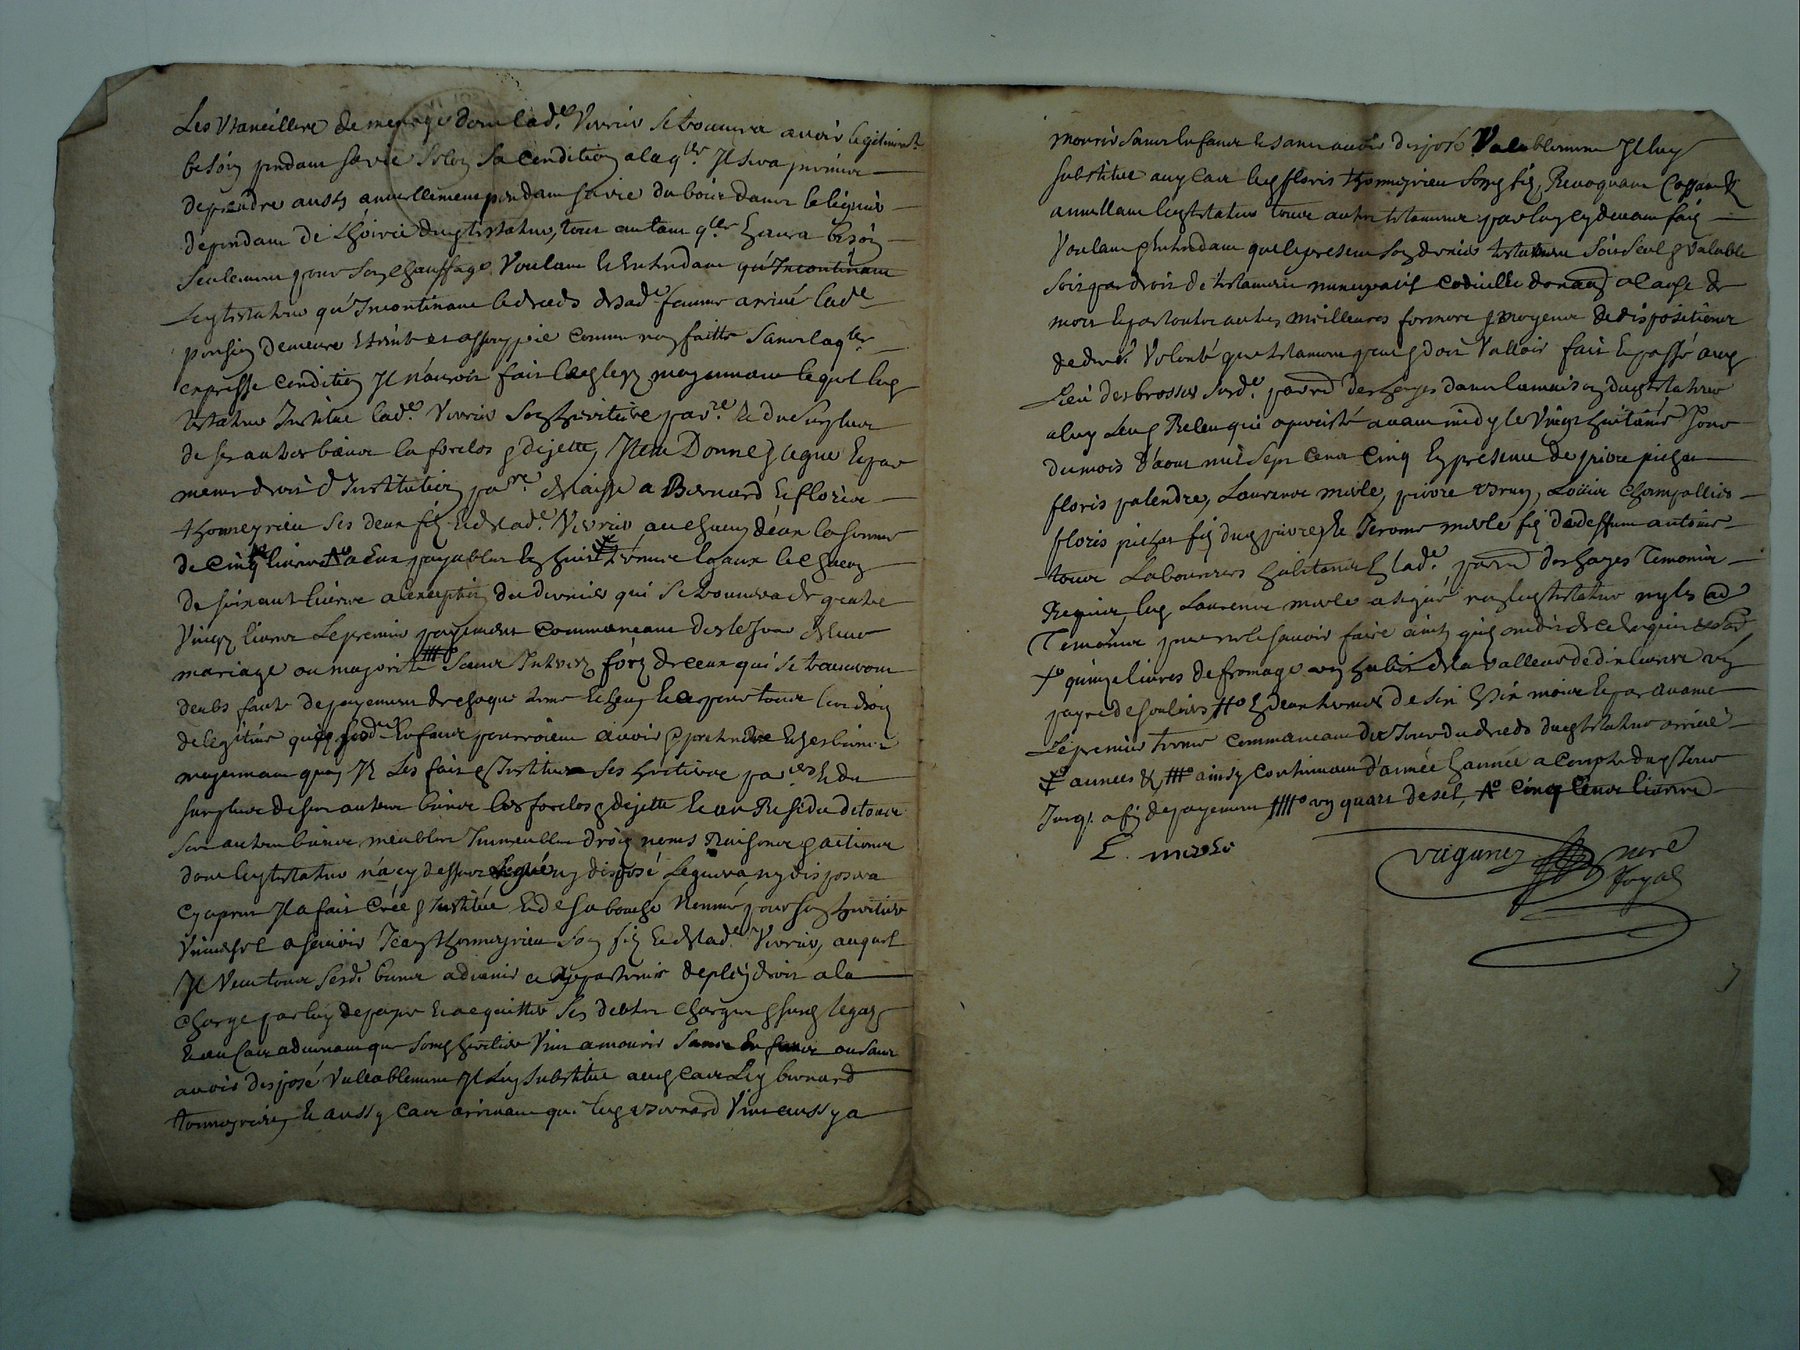 Les Utancilles de menage dont lad.e Verrier se trouvera avoir legitimem.t
besoin pendant sa vie selon sa Condition a laq.lle Il sera permis
de prendre aussy annuellement pendant sa vie du bois dans le
dependant de Lhoirie dud testateur, tout autant q.lle En aura besoin
Seulement pour son chauffage Voulant Et Entendant qu'Incontinant
Led testateur qu'Incontinant le deceds de sad.e femme arrivé lad.e
pension demeure Eteinte et assoupie comme non faitte sans laq.lle
expresse Condition Il n'auroit fait led legz moyennant lequel led
testateur Institue lad.e Verrier son heritiere par.re Et du surplus
de ses autres biens la forclos & dejette, Item Donne & legue Et par
mesme droit d'Institution par.re delaisse a Bernard Et floris
thomeyrieu ses deux fils Et de lad.e Verrier au chacun d'eux la somme
de Cinq livres a Eux payables En huit termes Egaux Et chacun
de soixante livres a l'exception du dernier qui se trouvera de quatre
Vingt livres Le premier payement Commancant des le Jour de leur
mariage ou majorité Sans Interez fors de ceux qui se trouveront
deubs faute de payement de chaque terme Echeu Et ce pour tous leur droit
de legitime que sesd. Enfans pourroient avoir & pretendre En ses biens
moyennant quoy Il Les fait & Institue ses heritiers par.res Et du
surplus de ses autres biens les forclos & dejette Et au Residu de tous
ses autres biens meubles Immeubles droits noms Raisons & actions
dont led testateur n'a cy dessus Legué ny disposé Leguera ny disposera
Cy apres Il a fait Créé & Institué Et de sa bouche Nommé pour son heritier
Universel a scavoir Jean thomeyrieu son fils Et de lad.e Verrier, auquel
Il Veut tous sesd. biens advenir et appartenir de plein droit a la
Charge par luy de payer Et acquitter ses debtes charges & susd legatz
Et au Cas advenant que sond heritier Vint a mourir Sans Enfans ou sans
avoir disposé Vallablement Il Luy substitue aud Cas Led bernard
thomeyrieu, Et aussy Cas arrivant que led Bernard Vint aussy a
mourir sans Enfans Et sans avoir disposé Valablement Il luy
substitue aud Cas led floris thomeyrieu son fils, Revoquant Cassant &
annullant led testateur tous autres testaments par luy cy devant faits
Voulant & Entendant que le present son dernier testament soit seul & valable
soit par droit de testament nuncupatif codicille donation a cause de
mort Et par toutes autres meilleures formes & moyens de disposition
de dern.e Volonté que testament peut & doit Valloir fait Et passé aud
Lieu des brosses susd. parr.e des hayes dans la maison dud testateur
a luy Leu & Releu qui a persisté avant midy le Vingt huitieme Jour
du mois d'aoust mil sept cents Cinq En presence de pierre pichon
floris palendre, Laurens merle, pierre, Louis Champallier
floris pichon fils dud pierre & Jerome merle fils de deffunt antoine
tous Laboureurs habitants En lad.e parr.e des hayes Temoins
Requis, led Laurens merle a signé non led testateur ny les a.
Temoins pour ne le scavoir faire ainsy qu'ils ont dit de ce Enquis
+ quinze livres de fromage un habit de la valleur de dix livres un
payre de souliers En deux termes de six En six mois Et par avance
Le premier terme Commancant des le Jour du deceds dud testateur arrivé
années & ainsy Continuant d'année En année a Compte dud Jour
Jusq. a fin de payement un quart de sel, Cinq Cents livres
L. merle
vaganez nore
Royal